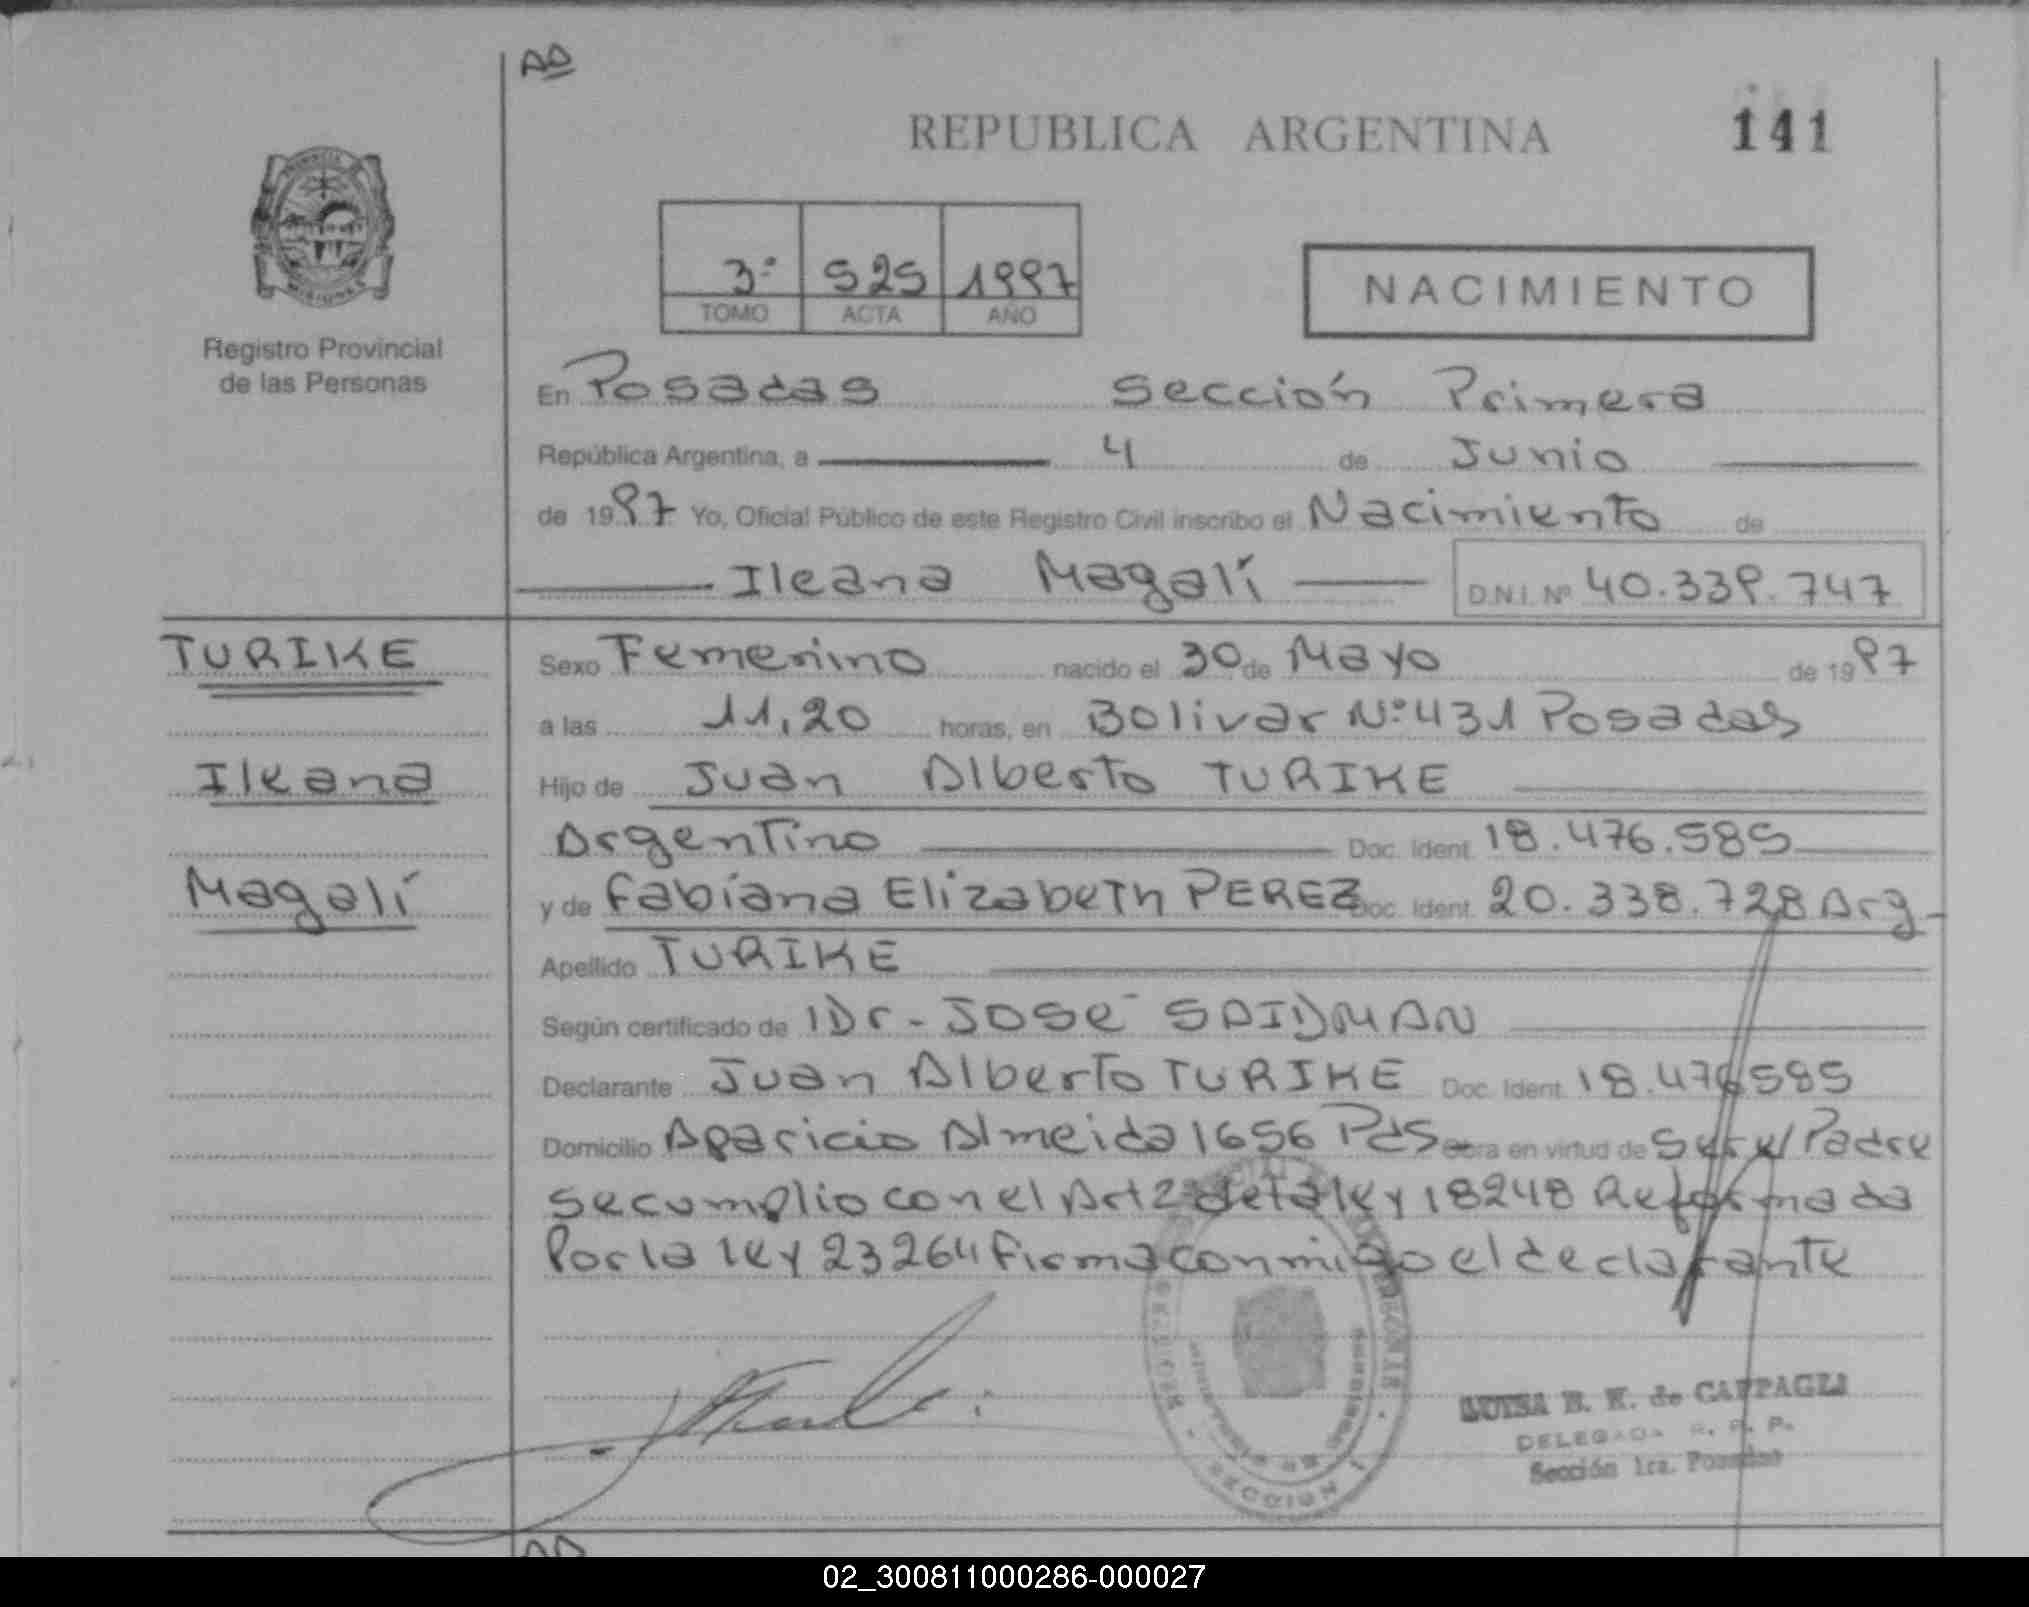 AD
REPUBLICA ARGENTINA
141
MISIONES
Registro Provincial
de las Personas
3º 525 1997
TOMO ACTA AÑO
NACIMIENTO
En Posadas Sección Primera
República Argentina, a 4 de Junio
de 1997 Yo, Oficial Público de este Registro Civil inscribo el Nacimiento de
Ileana Magalí D.N.I. Nº 40.339.747
TURIKE
Ileana
Magalí
Sexo Femenino nacido el 30 de Mayo de 1997
a las 11,20 horas, en Bolivar Nº 431 Posadas
Hijo de Juan Alberto TURIKE
Argentino Doc. Ident. 18.476.585
y de Fabiana Elizabeth PEREZ Doc. Ident. 20.338.728 Arg.
Apellido TURIKE
Según certificado de Dr. José SAIDMAN
Declarante Juan Alberto TURIKE Doc. Ident. 18.476585
Domicilio Aparicio Almeida 1656 Pds. Obra en virtud de ser el Padre
se cumplio con el Art 2 de la ley 18248 Reformada
Por la ley 23264 firma conmigo el declarante
SECCION 1
LUISA B. K. de CAPPAGLI
DELEGADA R. P. P.
Sección 1ra. Posadas
02_300811000286-000027